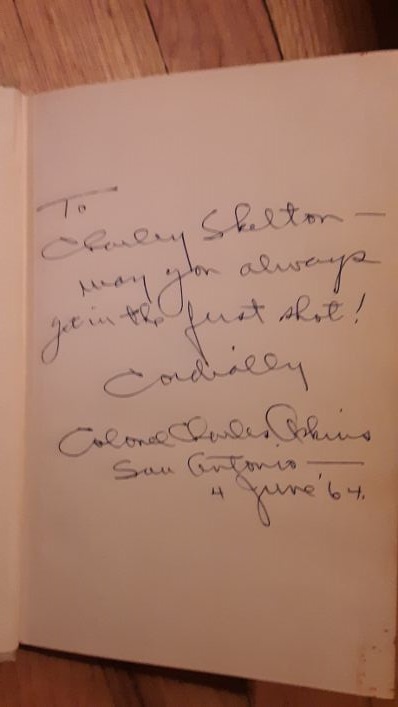 To
Charley Skelton —
may you always
get in the first shot!
Cordially
Colonel Charles Askins
San Antonio —
4 June '64.